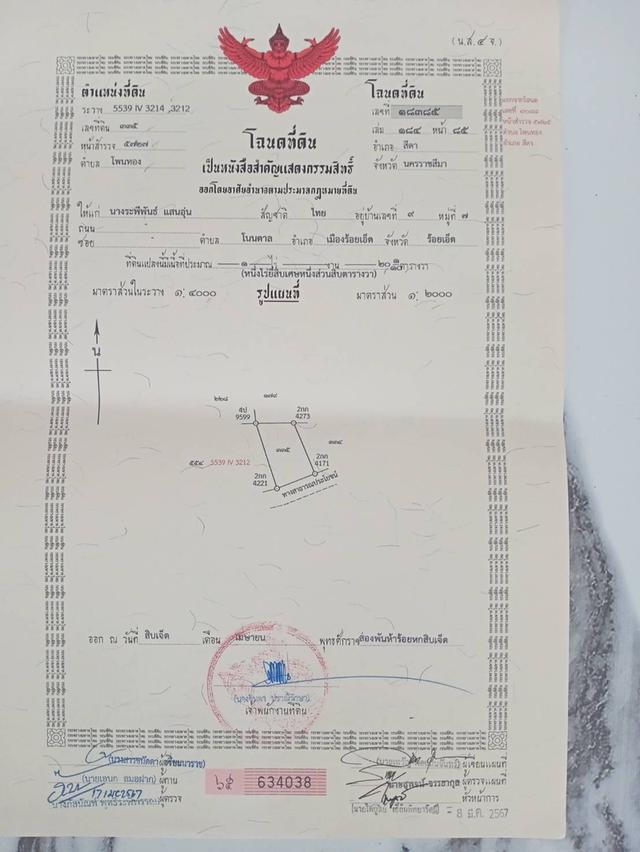 (น.ส. ๔ จ.)
ตำแหน่งที่ดิน
ระวาง 5539 IV 3214 ,3212
เลขที่ดิน ๓๓๕
หน้าสำรวจ ๕๗๒๗
ตำบล โพนทอง
โฉนดที่ดิน
เลขที่ ๑๘๓๘๕
เล่ม ๑๘๔ หน้า ๘๕
อำเภอ สีดา
จังหวัด นครราชสีมา
โฉนดที่ดิน
เป็นหนังสือสำคัญแสดงกรรมสิทธิ์
ออกโดยอาศัยอำนาจตามประมวลกฎหมายที่ดิน
ให้แก่ นางระพีพันธ์ แสนอุ่น สัญชาติ ไทย อยู่บ้านเลขที่ ๙ หมู่ที่ ๗
ถนน
ซอย - ตำบล โนนตาล อำเภอ เมืองร้อยเอ็ด จังหวัด ร้อยเอ็ด
ที่ดินแปลงนี้มีเนื้อที่ประมาณ ๑ ไร่ งาน ตารางวา
(หนึ่งไร่ยี่สิบเศษหนึ่งส่วนสิบตารางวา)
มาตราส่วนในระวาง ๑: ๔๐๐๐ รูปแผนที่ มาตราส่วน ๑: ๒๐๐๐
น
๒๒๘ ๑๗๙
4ป 9599
2กก 4273
๓๓๕
๓๓๔
๕๕๔ 5539 IV 3212
2กก 4171
2กก 4221
ทางสาธารณประโยชน์
ออก ณ วันที่ สิบเจ็ด เดือน เมษายน พุทธศักราช สองพันห้าร้อยหกสิบเจ็ด
เจ้าพนักงานที่ดิน
ผู้เขียน
ผู้ทาน
ผู้ตรวจ
๖๕ 634038
ผู้เขียนแผนที่
ผู้ตรวจแผนที่
หัวหน้าการ
- 8 มี.ค. 2567